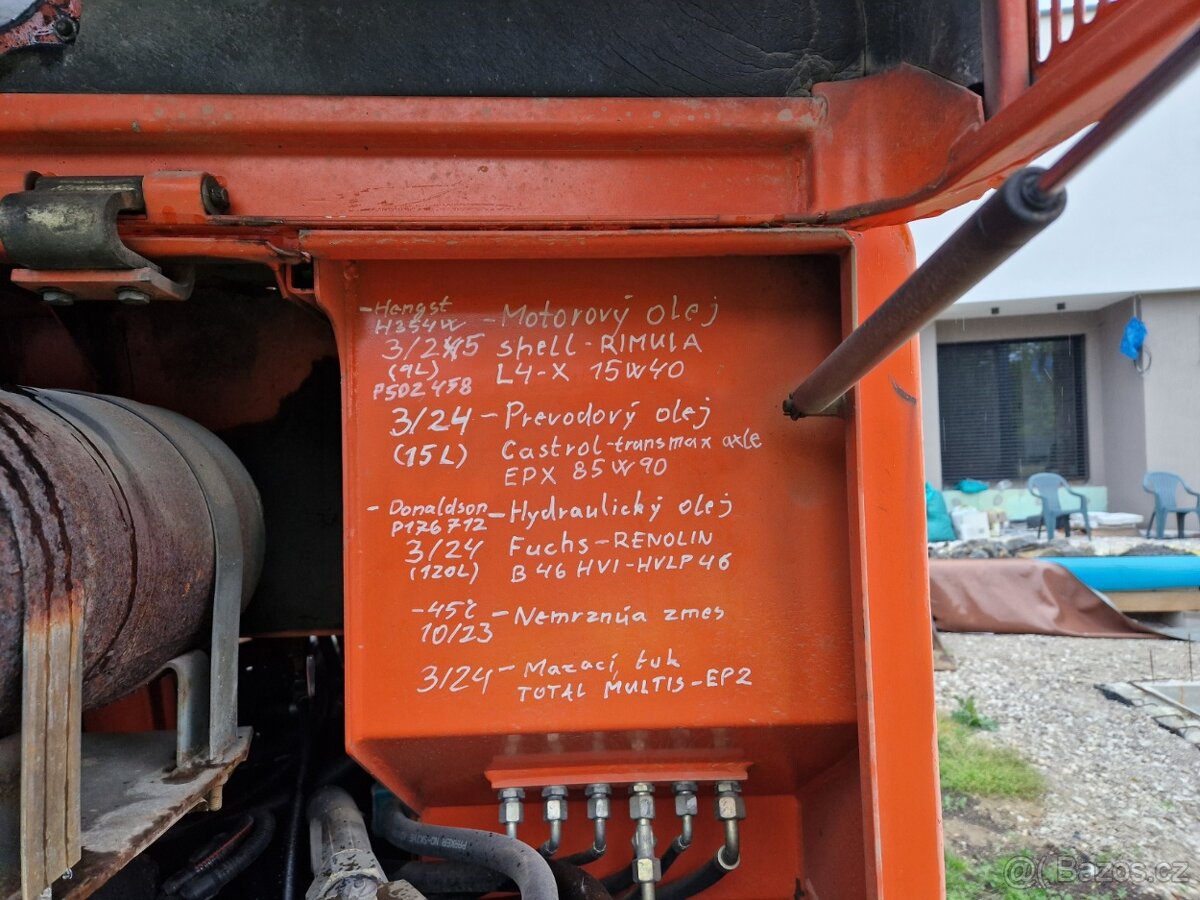 -Hengst
H354W - Motorový olej
3/25 shell-RIMULA
(9L) L4-X 15W40
P502458
3/24 - Prevodový olej
(15L) Castrol-transmax axle
EPX 85W90
- Donaldson - Hydraulický olej
P176712
3/24 Fuchs-RENOLIN
(120L) B 46 HVI-HVLP46
-45°C - Nemrznúa zmes
10/23
3/24 - Mazací, tuk
TOTAL MULTIS-EP2
PARKER
© Bazos.cz